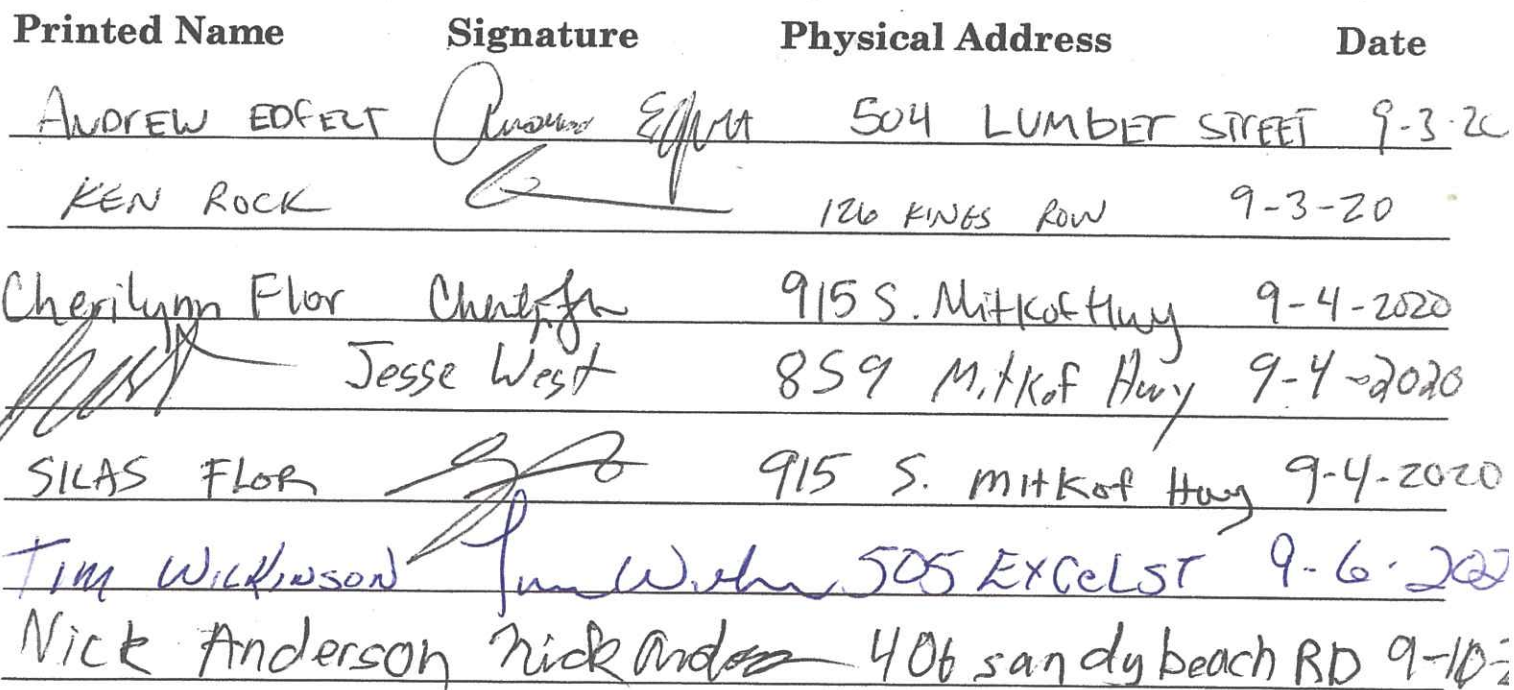 Printed Name Signature Physical Address Date
ANDREW EDFELT 504 LUMBER STREET 9-3-20
KEN ROCK 126 KINGS ROW 9-3-20
Cherilynn Flor 915 S. Mitkof Hwy 9-4-2020
Jesse West 859 Mitkof Hwy 9-4-2020
SILAS FLOR 915 S. Mitkof Hwy 9-4-2020
TIM WICKINSON 505 EXCEL ST 9-6-202
Nick Anderson nick 406 sandy beach RD 9-10-2